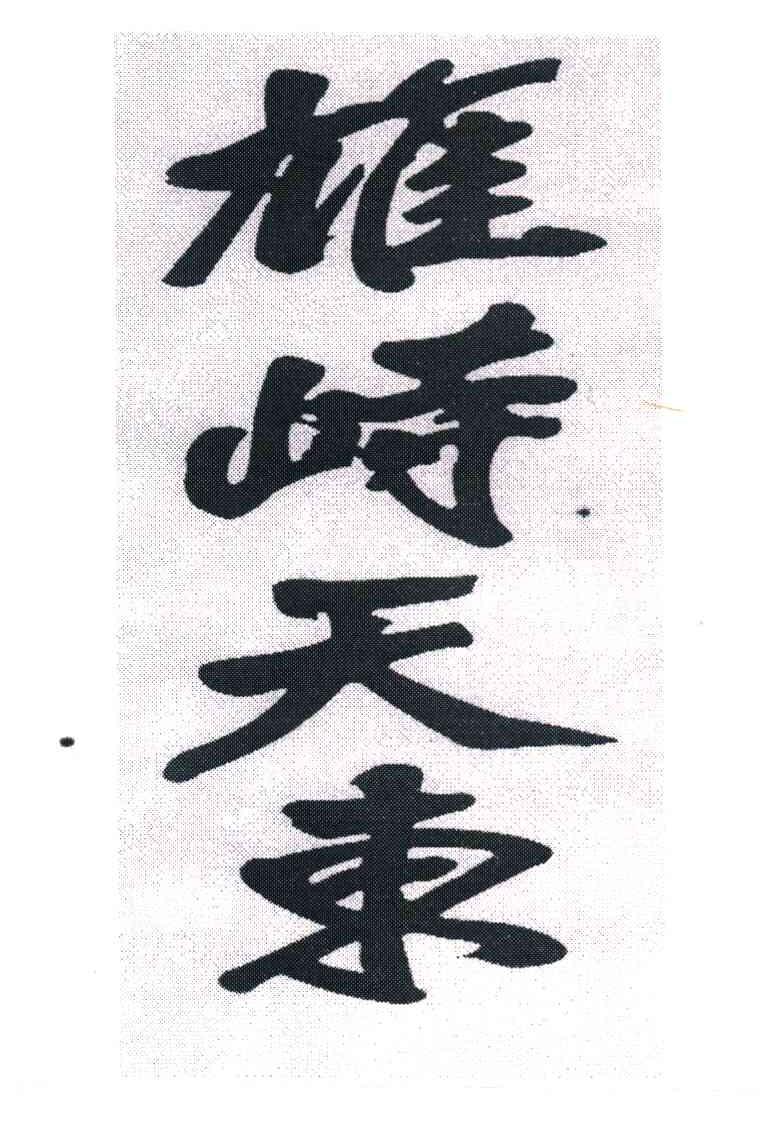 雄峙天東